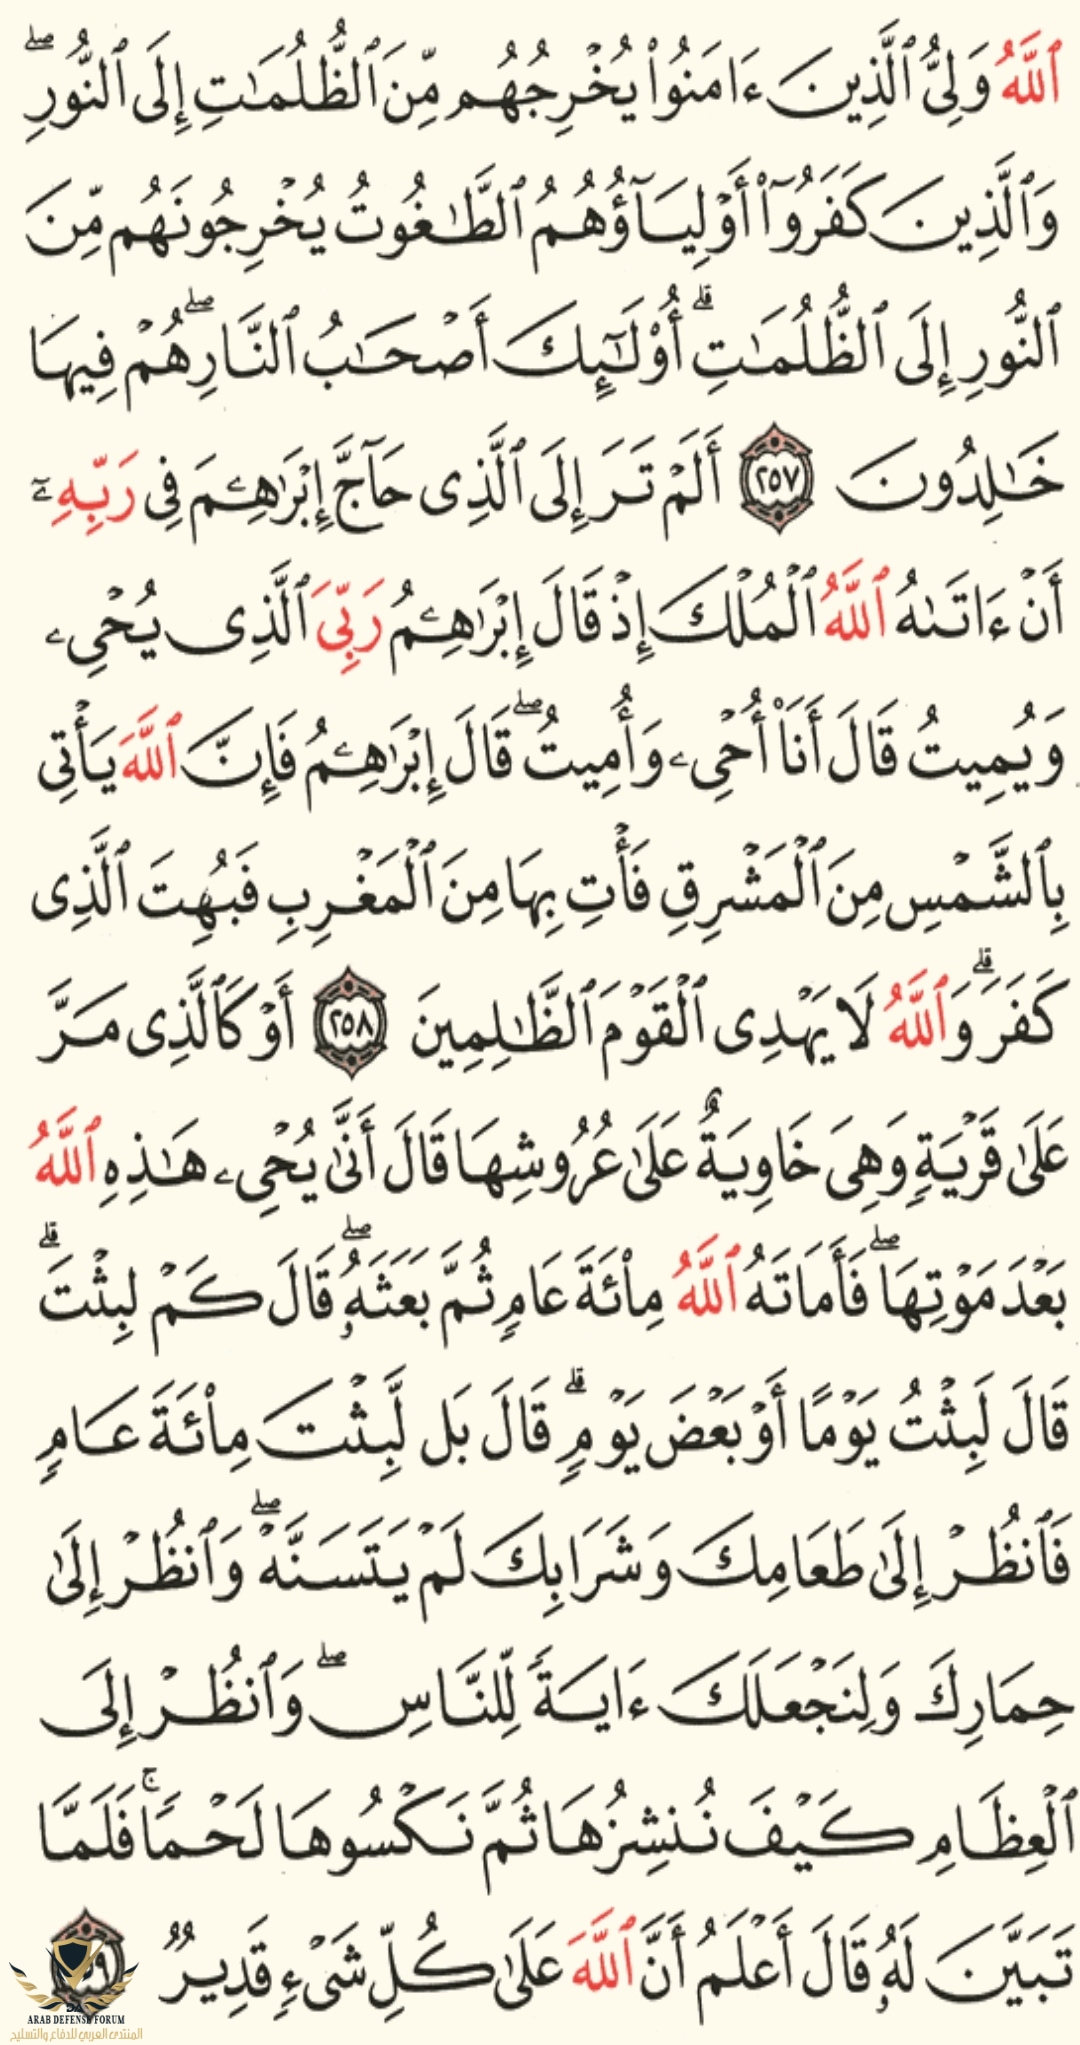 ٱللَّهُ وَلِىُّ ٱلَّذِينَ ءَامَنُوا۟ يُخْرِجُهُم مِّنَ ٱلظُّلُمَـٰتِ إِلَى ٱلنُّورِ ۖ
وَٱلَّذِينَ كَفَرُوٓا۟ أَوْلِيَآؤُهُمُ ٱلطَّـٰغُوتُ يُخْرِجُونَهُم مِّنَ
ٱلنُّورِ إِلَى ٱلظُّلُمَـٰتِ ۗ أُو۟لَـٰٓئِكَ أَصْحَـٰبُ ٱلنَّارِ ۖ هُمْ فِيهَا
خَـٰلِدُونَ ٢٥٧ أَلَمْ تَرَ إِلَى ٱلَّذِى حَآجَّ إِبْرَٰهِـۧمَ فِى رَبِّهِۦٓ
أَنْ ءَاتَىٰهُ ٱللَّهُ ٱلْمُلْكَ إِذْ قَالَ إِبْرَٰهِـۧمُ رَبِّىَ ٱلَّذِى يُحْىِۦ
وَيُمِيتُ قَالَ أَنَا۠ أُحْىِۦ وَأُمِيتُ ۖ قَالَ إِبْرَٰهِـۧمُ فَإِنَّ ٱللَّهَ يَأْتِى
بِٱلشَّمْسِ مِنَ ٱلْمَشْرِقِ فَأْتِ بِهَا مِنَ ٱلْمَغْرِبِ فَبُهِتَ ٱلَّذِى
كَفَرَ ۗ وَٱللَّهُ لَا يَهْدِى ٱلْقَوْمَ ٱلظَّـٰلِمِينَ ٢٥٨ أَوْ كَٱلَّذِى مَرَّ
عَلَىٰ قَرْيَةٍ وَهِىَ خَاوِيَةٌ عَلَىٰ عُرُوشِهَا قَالَ أَنَّىٰ يُحْىِۦ هَـٰذِهِ ٱللَّهُ
بَعْدَ مَوْتِهَا ۖ فَأَمَاتَهُ ٱللَّهُ مِا۟ئَةَ عَامٍ ثُمَّ بَعَثَهُۥ ۖ قَالَ كَمْ لَبِثْتَ ۖ
قَالَ لَبِثْتُ يَوْمًا أَوْ بَعْضَ يَوْمٍ ۖ قَالَ بَل لَّبِثْتَ مِا۟ئَةَ عَامٍ
فَٱنظُرْ إِلَىٰ طَعَامِكَ وَشَرَابِكَ لَمْ يَتَسَنَّهْ ۖ وَٱنظُرْ إِلَىٰ
حِمَارِكَ وَلِنَجْعَلَكَ ءَايَةً لِّلنَّاسِ ۖ وَٱنظُرْ إِلَى
ٱلْعِظَامِ كَيْفَ نُنشِزُهَا ثُمَّ نَكْسُوهَا لَحْمًا ۚ فَلَمَّا
تَبَيَّنَ لَهُۥ قَالَ أَعْلَمُ أَنَّ ٱللَّهَ عَلَىٰ كُلِّ شَىْءٍ قَدِيرٌ
ARAB DEFENSE FORUM
المنتدى العربي للدفاع والتسليح